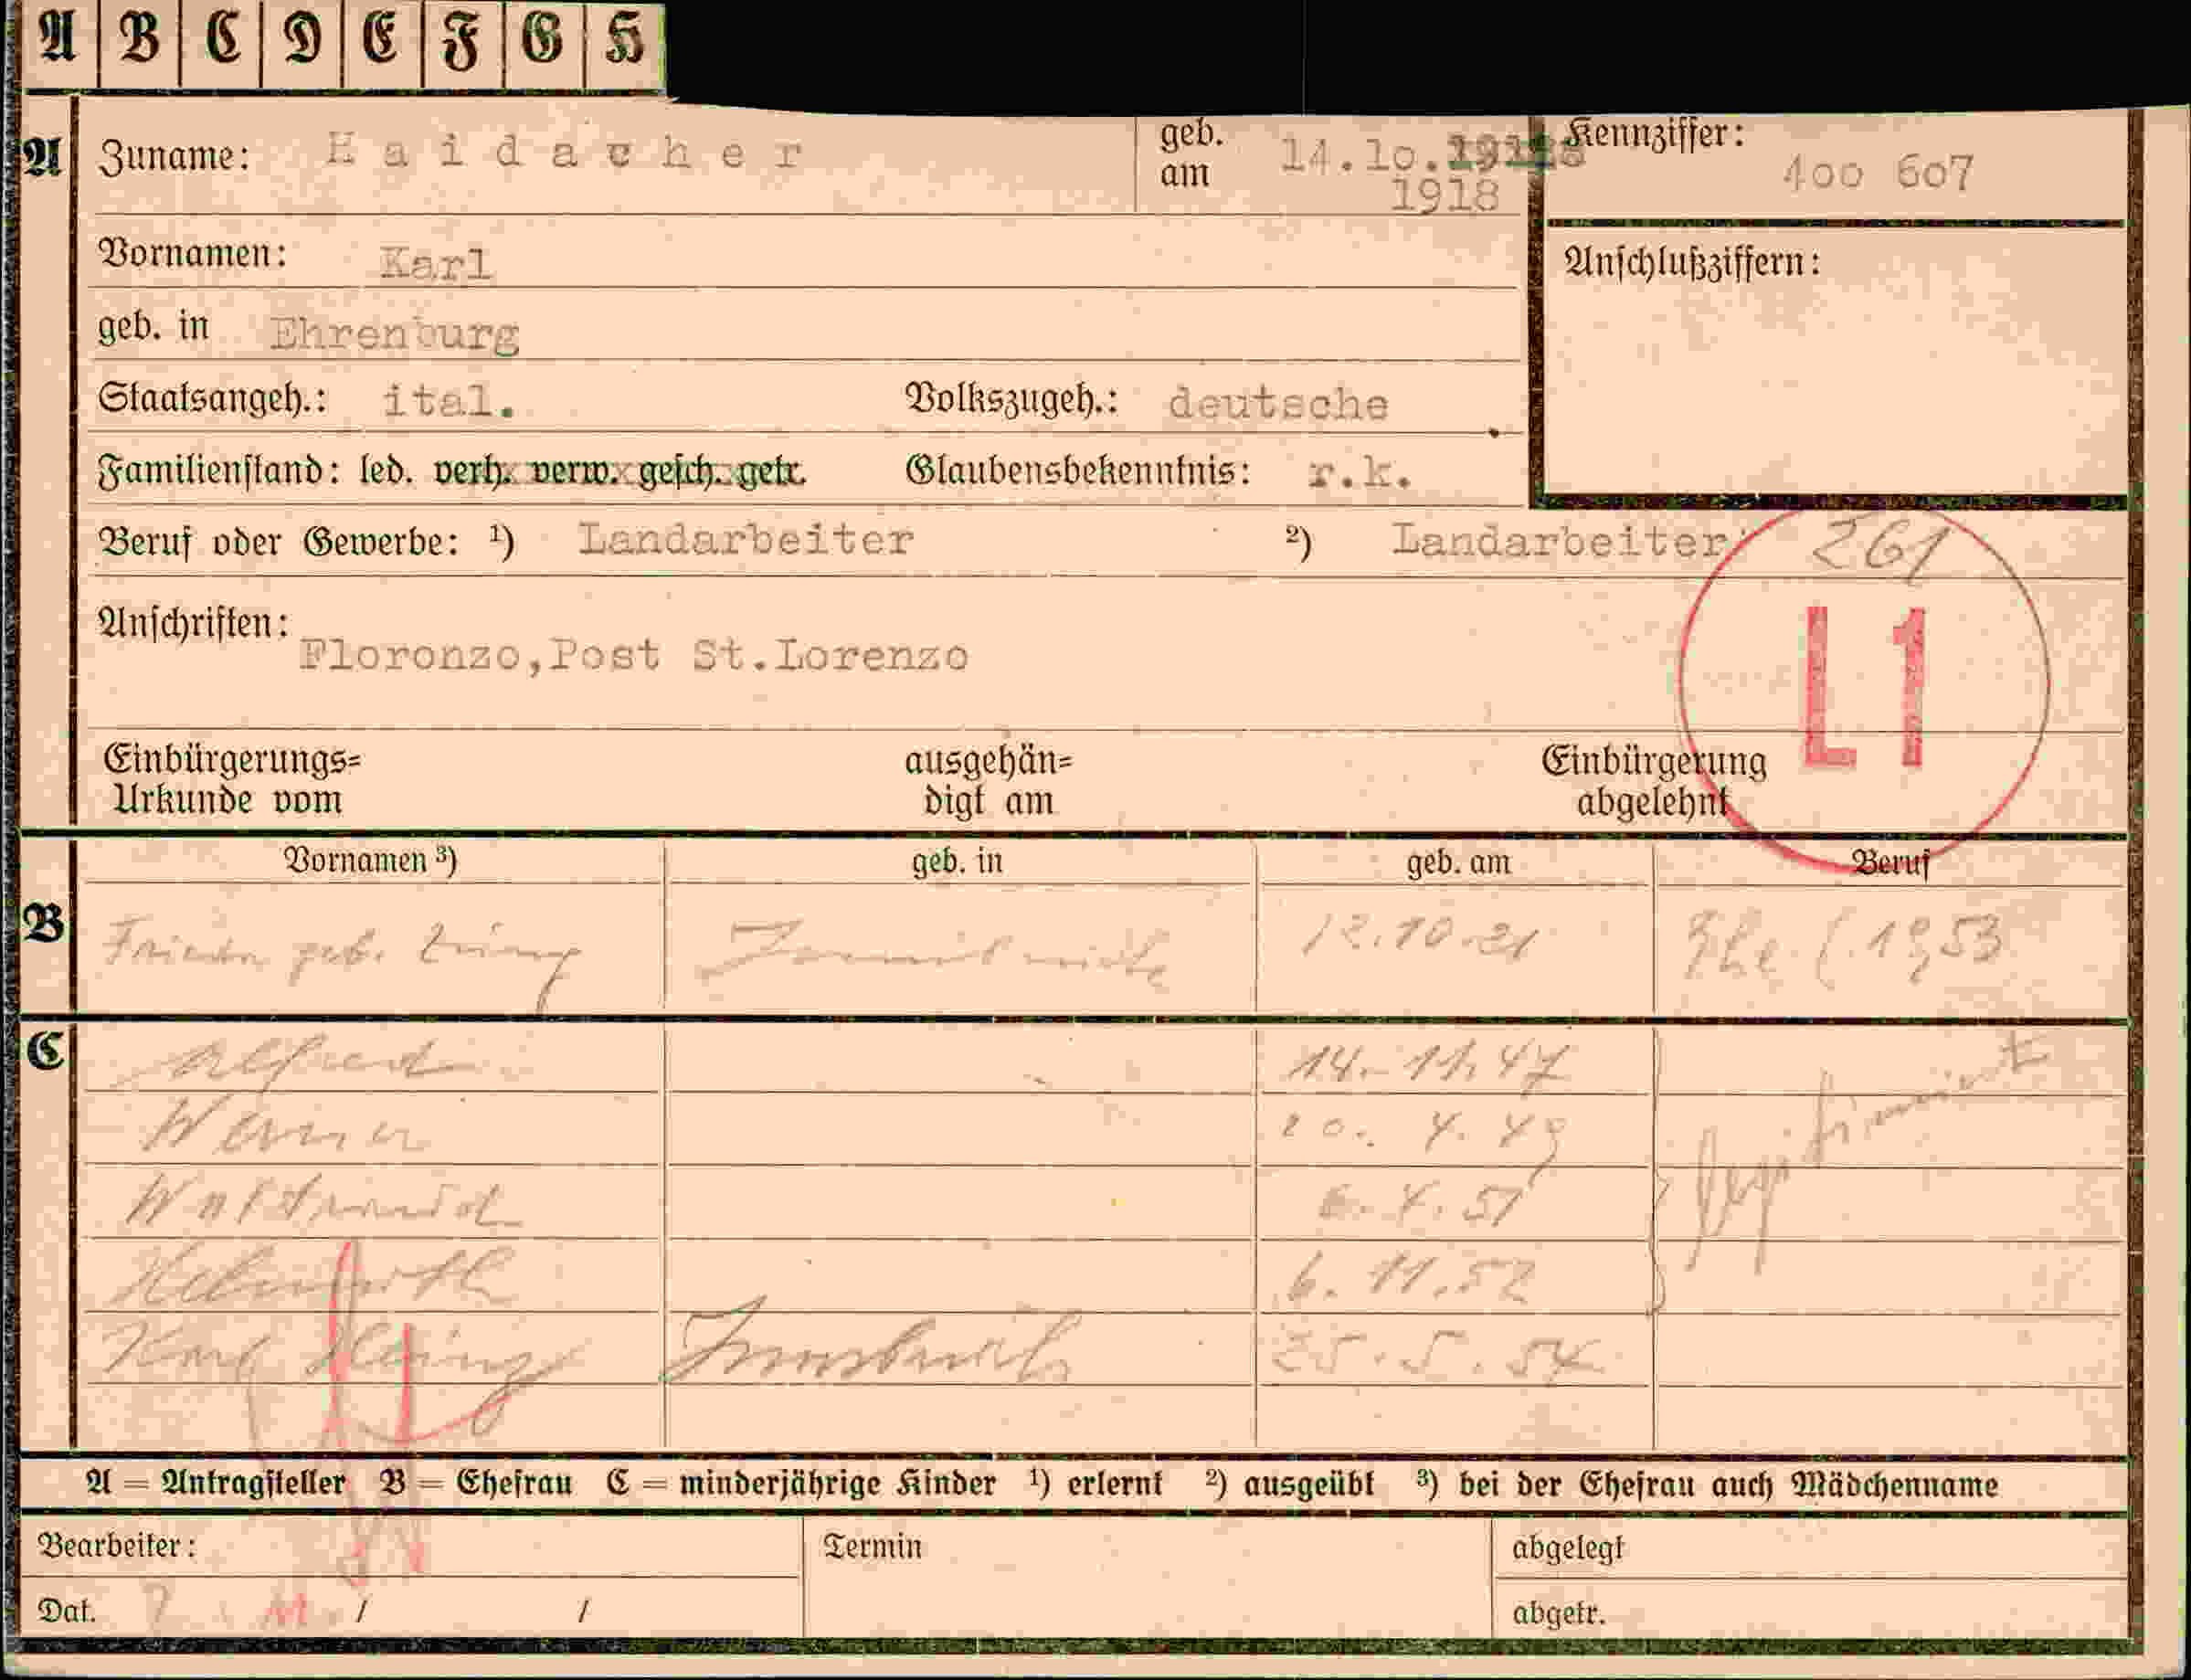 A B C D E F G H
A Zuname: Haidacher geb. am 14.10. 1918 Kennziffer: 400 607
Vornamen: Karl Anschlußziffern:
geb. in Ehrenburg
Staatsangeh.: ital. Volkszugeh.: deutsche
Familienstand: led. verh. verw. gesch. getr. Glaubensbekenntnis: r.k.
Beruf oder Gewerbe: 1) Landarbeiter 2) Landarbeiter 261
Anschriften: Floronzo,Post St.Lorenzo
L1
Einbürgerungs=
Urkunde vom
ausgehän=
digt am
Einbürgerung
abgelehnt
Vornamen 3) geb. in geb. am Beruf
B geb. 12.10.21 1953
C Alfred 14.11.47
Werner 4. 49
Waltraud 4. 51
6. 11.52
Karl Heinz Innsbruck 25.5.54
A = Antragsteller B = Ehefrau C = minderjährige Kinder 1) erlernt 2) ausgeübt 3) bei der Ehefrau auch Mädchenname
Bearbeiter: Termin abgelegt
Dat. / / abgetr.